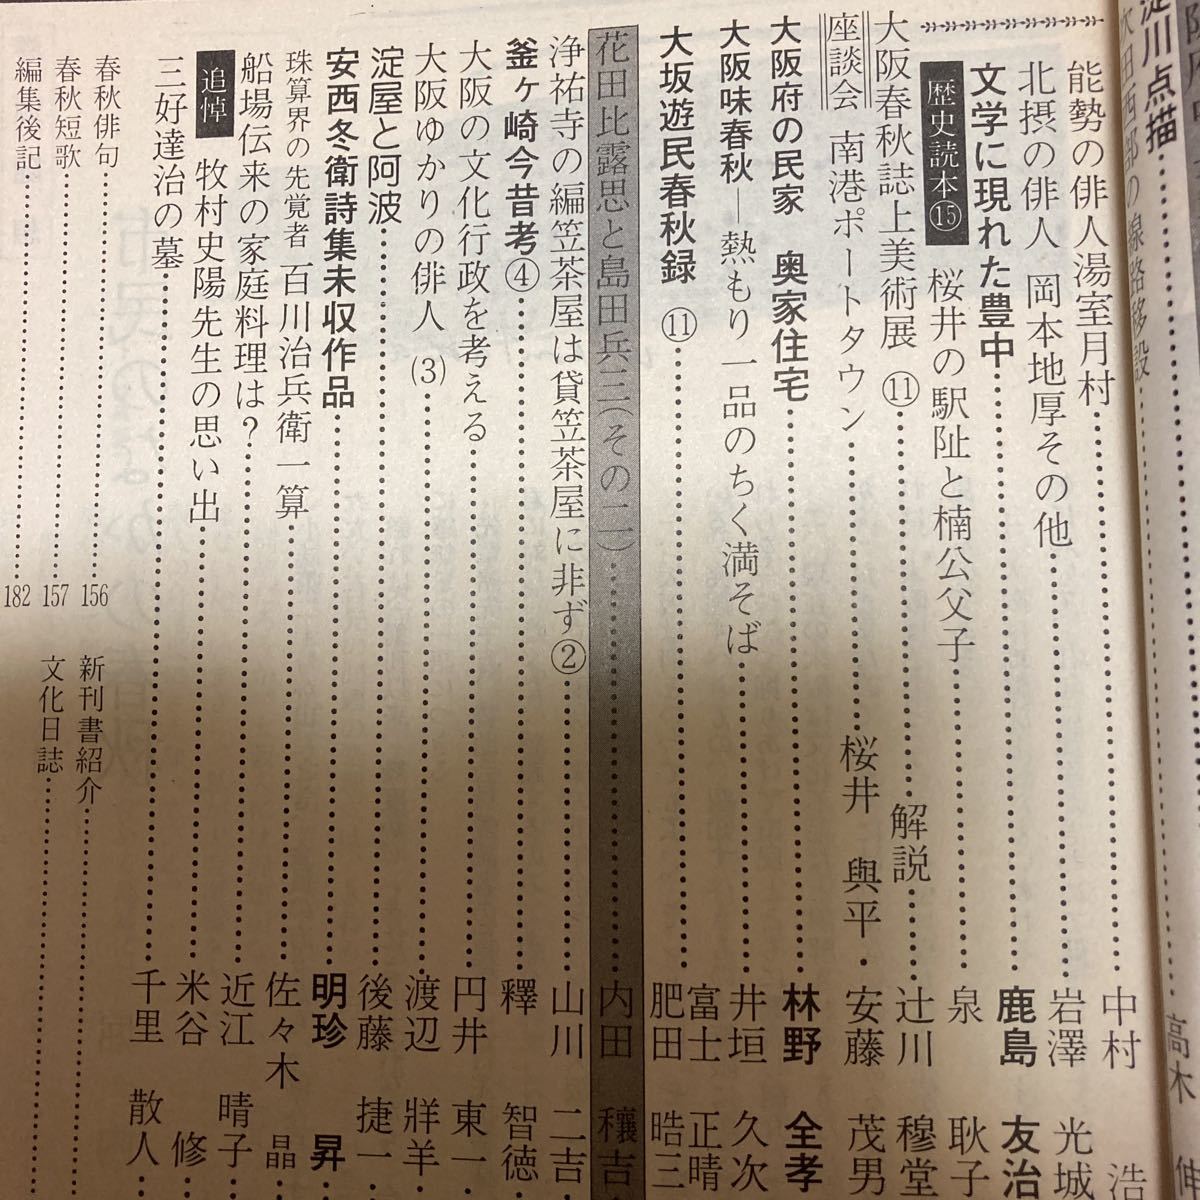 淀川点描
吹田西部の線路移設 高木 伸
能勢の俳人湯室月村 中村 浩
北摂の俳人 岡本地厚その他 岩澤 光城
文学に現れた豊中 鹿島 友治
歴史読本⑮ 桜井の駅阯と楠公父子 泉 耿子
大阪春秋誌上美術展 ⑪ 解説 辻川 穆堂
座談会 南港ポートタウン 桜井 與平・安藤 茂男
大阪府の民家 奥家住宅 林野 全孝
大阪味春秋―熱もり一品のちく満そば 井垣 久次
富士 正晴
大坂遊民春秋録 ⑪ 肥田 晧三
花田比露思と島田兵三(その二) 内田 穰吉
浄祐寺の編笠茶屋は貸笠茶屋に非ず② 山川 二吉
釜ヶ崎今昔考④ 釋 智徳
大阪の文化行政を考える 円井 東一
大阪ゆかりの俳人 (3) 渡辺 牂羊
淀屋と阿波 後藤 捷一
安西冬衛詩集未収作品 明珍 昇
珠算界の先覚者 百川治兵衛一算 佐々木 晶
船場伝来の家庭料理は? 近江 晴子
追悼 牧村史陽先生の思い出 米谷 修
三好達治の墓 千里 散人
春秋俳句 156 新刊書紹介
春秋短歌 157 文化日誌
編集後記 182